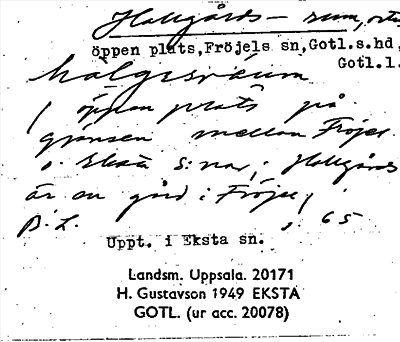 Hallgårds- rum, ortn
öppen plats, Fröjels sn, Gotl.s.hd,
Gotl.l.
( öppen plats på
gränsen mellan Fröjel
o. Eksta s:nar; Hallgårds
är en gård i Fröjel)
B.L. , 65
Uppt. i Eksta sn.
Landsm. Uppsala. 20171
H. Gustavson 1949 EKSTA
GOTL. (ur acc. 20078)